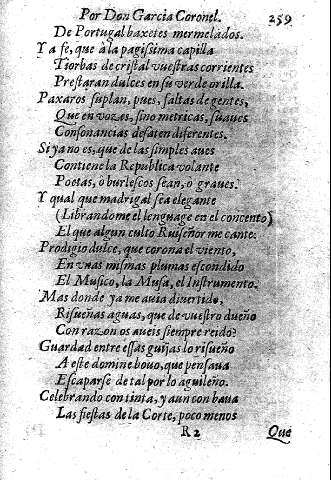 Por Don Garcia Coronel. 259
De Portugal baxeles mermelados.
Y a fe, que à la pagissima capilla
Tiorbas de cristal vuestras corrientes
Prestaran dulces en su verde orilla.
Paxaros suplan, pues, faltas de gentes,
Que en vozes, sino metricas, suaues
Consonancias desaten diferentes.
Si ya no es, que de las simples aues
Contiene la Republica volante
Poetas, ò burlescos sean, o graues.
Y qual que madrigal sea elegante
(Librandome el lenguage en el concento)
El que algun culto Ruiseñor me cante.
Prodigio dulce, que corona el viento,
En vnas mismas plumas escondido
El Musico, la Musa, el Instrumento.
Mas donde ya me auia divertido,
Risueñas aguas, que de vuestro dueño
Con razon os aueis siempre reido?
Guardad entre essas guijas lo risueño
A este domine bouo, que pensaua
Escaparse de tal por lo aguileño.
Celebrando con tinta, y aun con baua
Las fiestas de la Corte, poco menos
R 2 Que